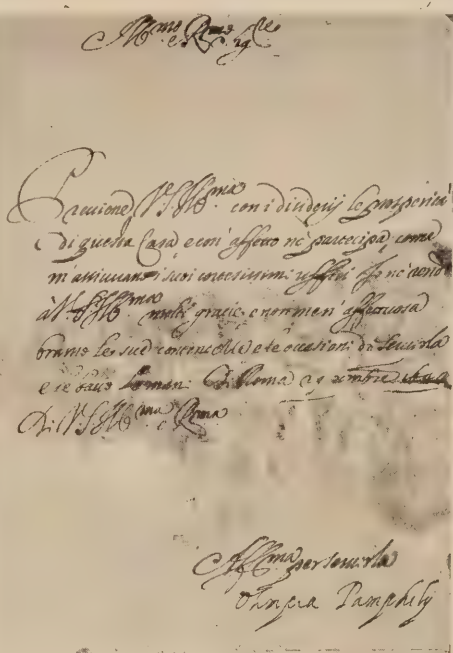 Ill.mo e R.mo Sig.re
Preuiene V.S.Ill.ma con i diuderij le prosperità
di questa Casa, e con affetto ne partecipa, come
m'assicurano i suoi cortesissimi uffitij. Io ne rendo
à V.S.Ill.ma molte gratie, e non men affettuosa
bramo le sue contentezze e le occasioni di seruirla
e le bacio le mani. Di Roma
Di V.S.Ill.ma e R.ma
Aff.ma per seruirla
Olimpia Pamphilij